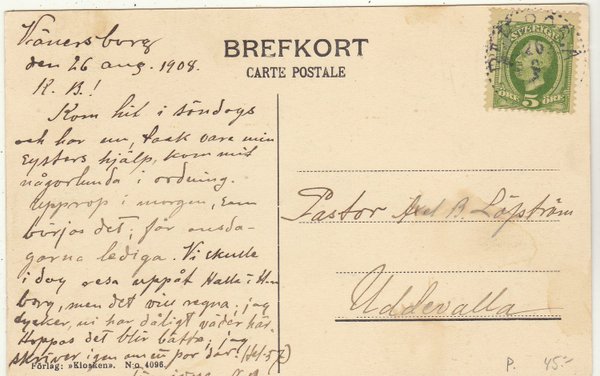 Vänersborg
den 26 aug. 1908.
K. B.!
Kom hit i söndags
och har nu, tack vare min
systers hjälp, kommit
någorlunda i ordning.
Upprop i morgon, sen
börjas det, får onsda-
garna lediga. Vi skulle
i dag resa uppåt Halle i Hunne-
berg, men det vill regna. jag
tycker, vi har dåligt väder här.
Hoppas det blir bättre, jag
skriver igen om en par dar.
BREFKORT
CARTE POSTALE
SVERIGE
ÖRE 5 ÖRE
Pastor Axel B. Löfström
Uddevalla
Förlag: »Kiosken». N:o 4096.
P. 45:-